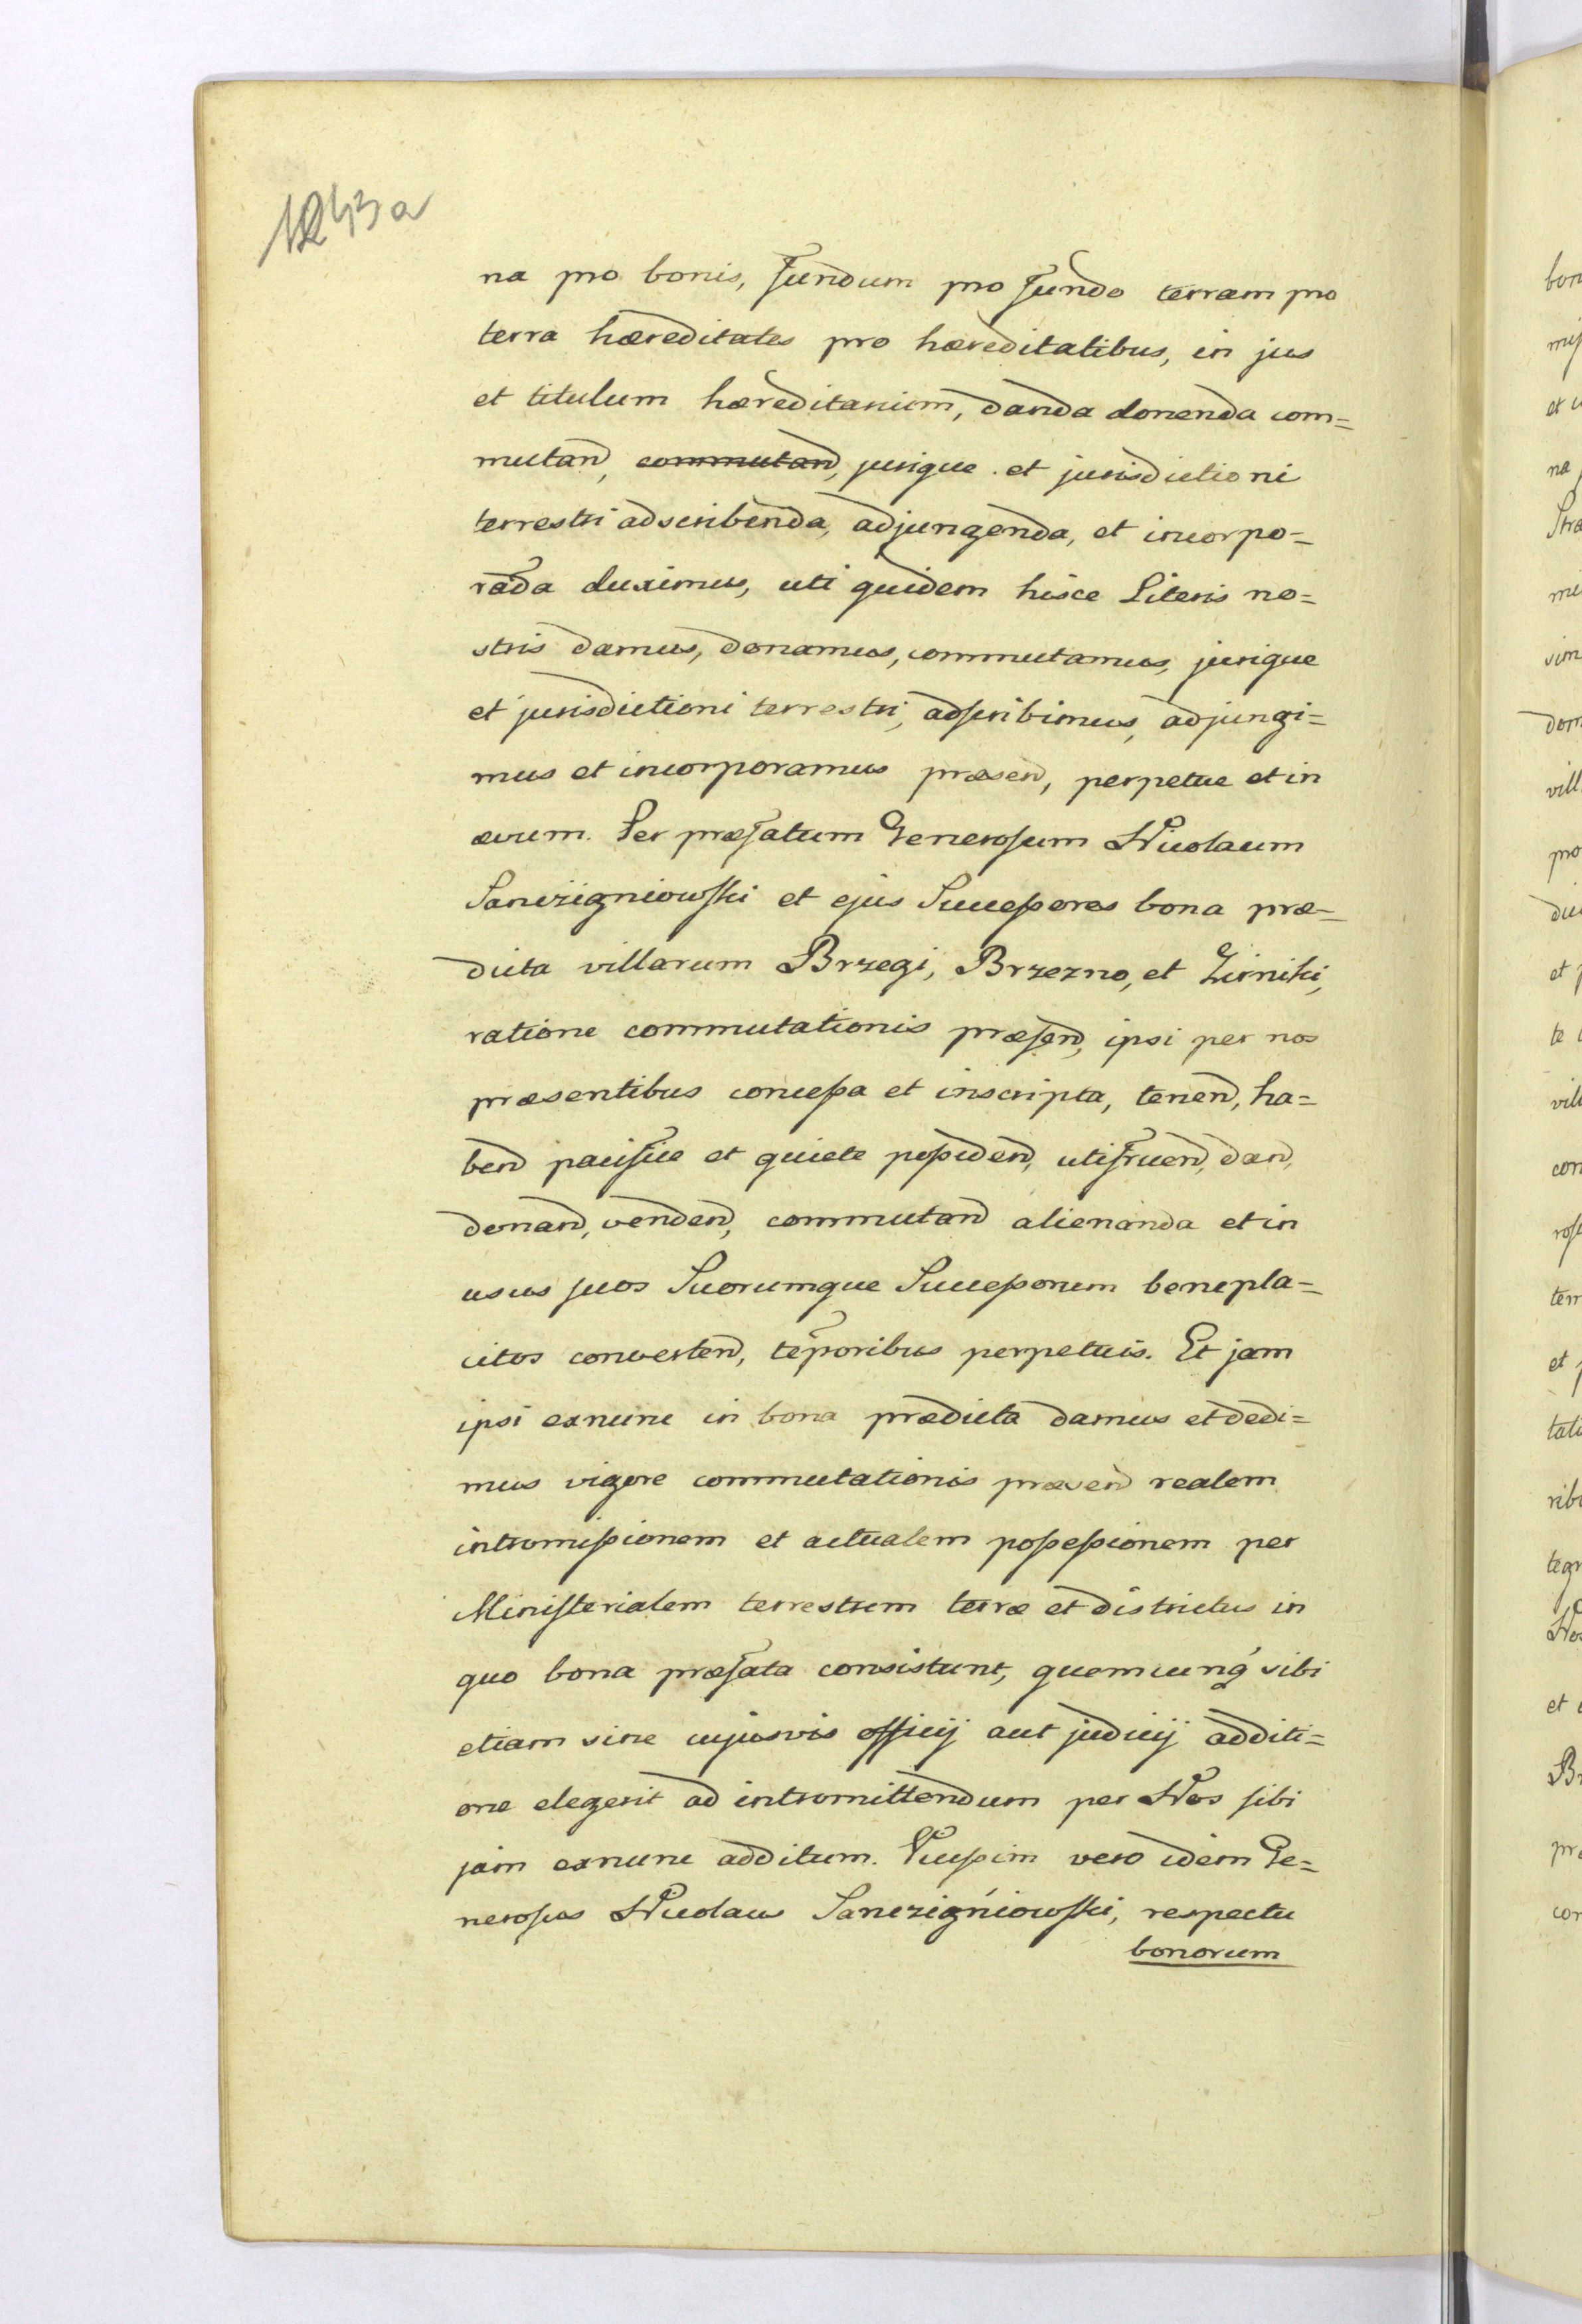 na pro bonis, fundum pro fundo terram pro
terra hæreditates pro hæreditatibus, in jus
et titulum hæreditarium, danda donenda com=
mutand, commutand, jurique et jurisdictioni
terrestri adscribenda, adjungenda, et incorpo=
rada duximus, uti quidem hisce Literis no=
stris damus, donamus, commutamus, jurique
et jurisdictioni terrestri, adscribimus, adjungi=
mus et incorporamus præsend, perpetue et in
ævum. Per præfatum Generosum Nicolaum
Sanczigniowski et ejus Successores bona præ=
dicta villarum Brzegi, Brzezno, et Żerniki,
ratione commutationis præsend, ipsi per nos
præsentibus concessa et inscripta, tenend, ha=
bend pacifice et quiete possidend, utifruend, dand,
donand, vendend, commutand alienanda et in
usus suos Suorumque Successorum benepla=
citos convertend, temporibus perpetuis. Et jam
ipsi exnunc in bona prædicta damus et dedi=
mus vigore commutationis præsend realem
intromissionem et actualem possessionem per
Ministerialem terrestrem terræ et districtus in
quo bona præfata consistunt, quemcunq sibi
etiam sine cujusvis officij aut judicij additi=
one elegerit ad intromittendum per Nos sibi
jam exnunc additum. Vicissim vero idem Ge=
nerosus Nicolaus Sanczigniowski, respectu
bonorum